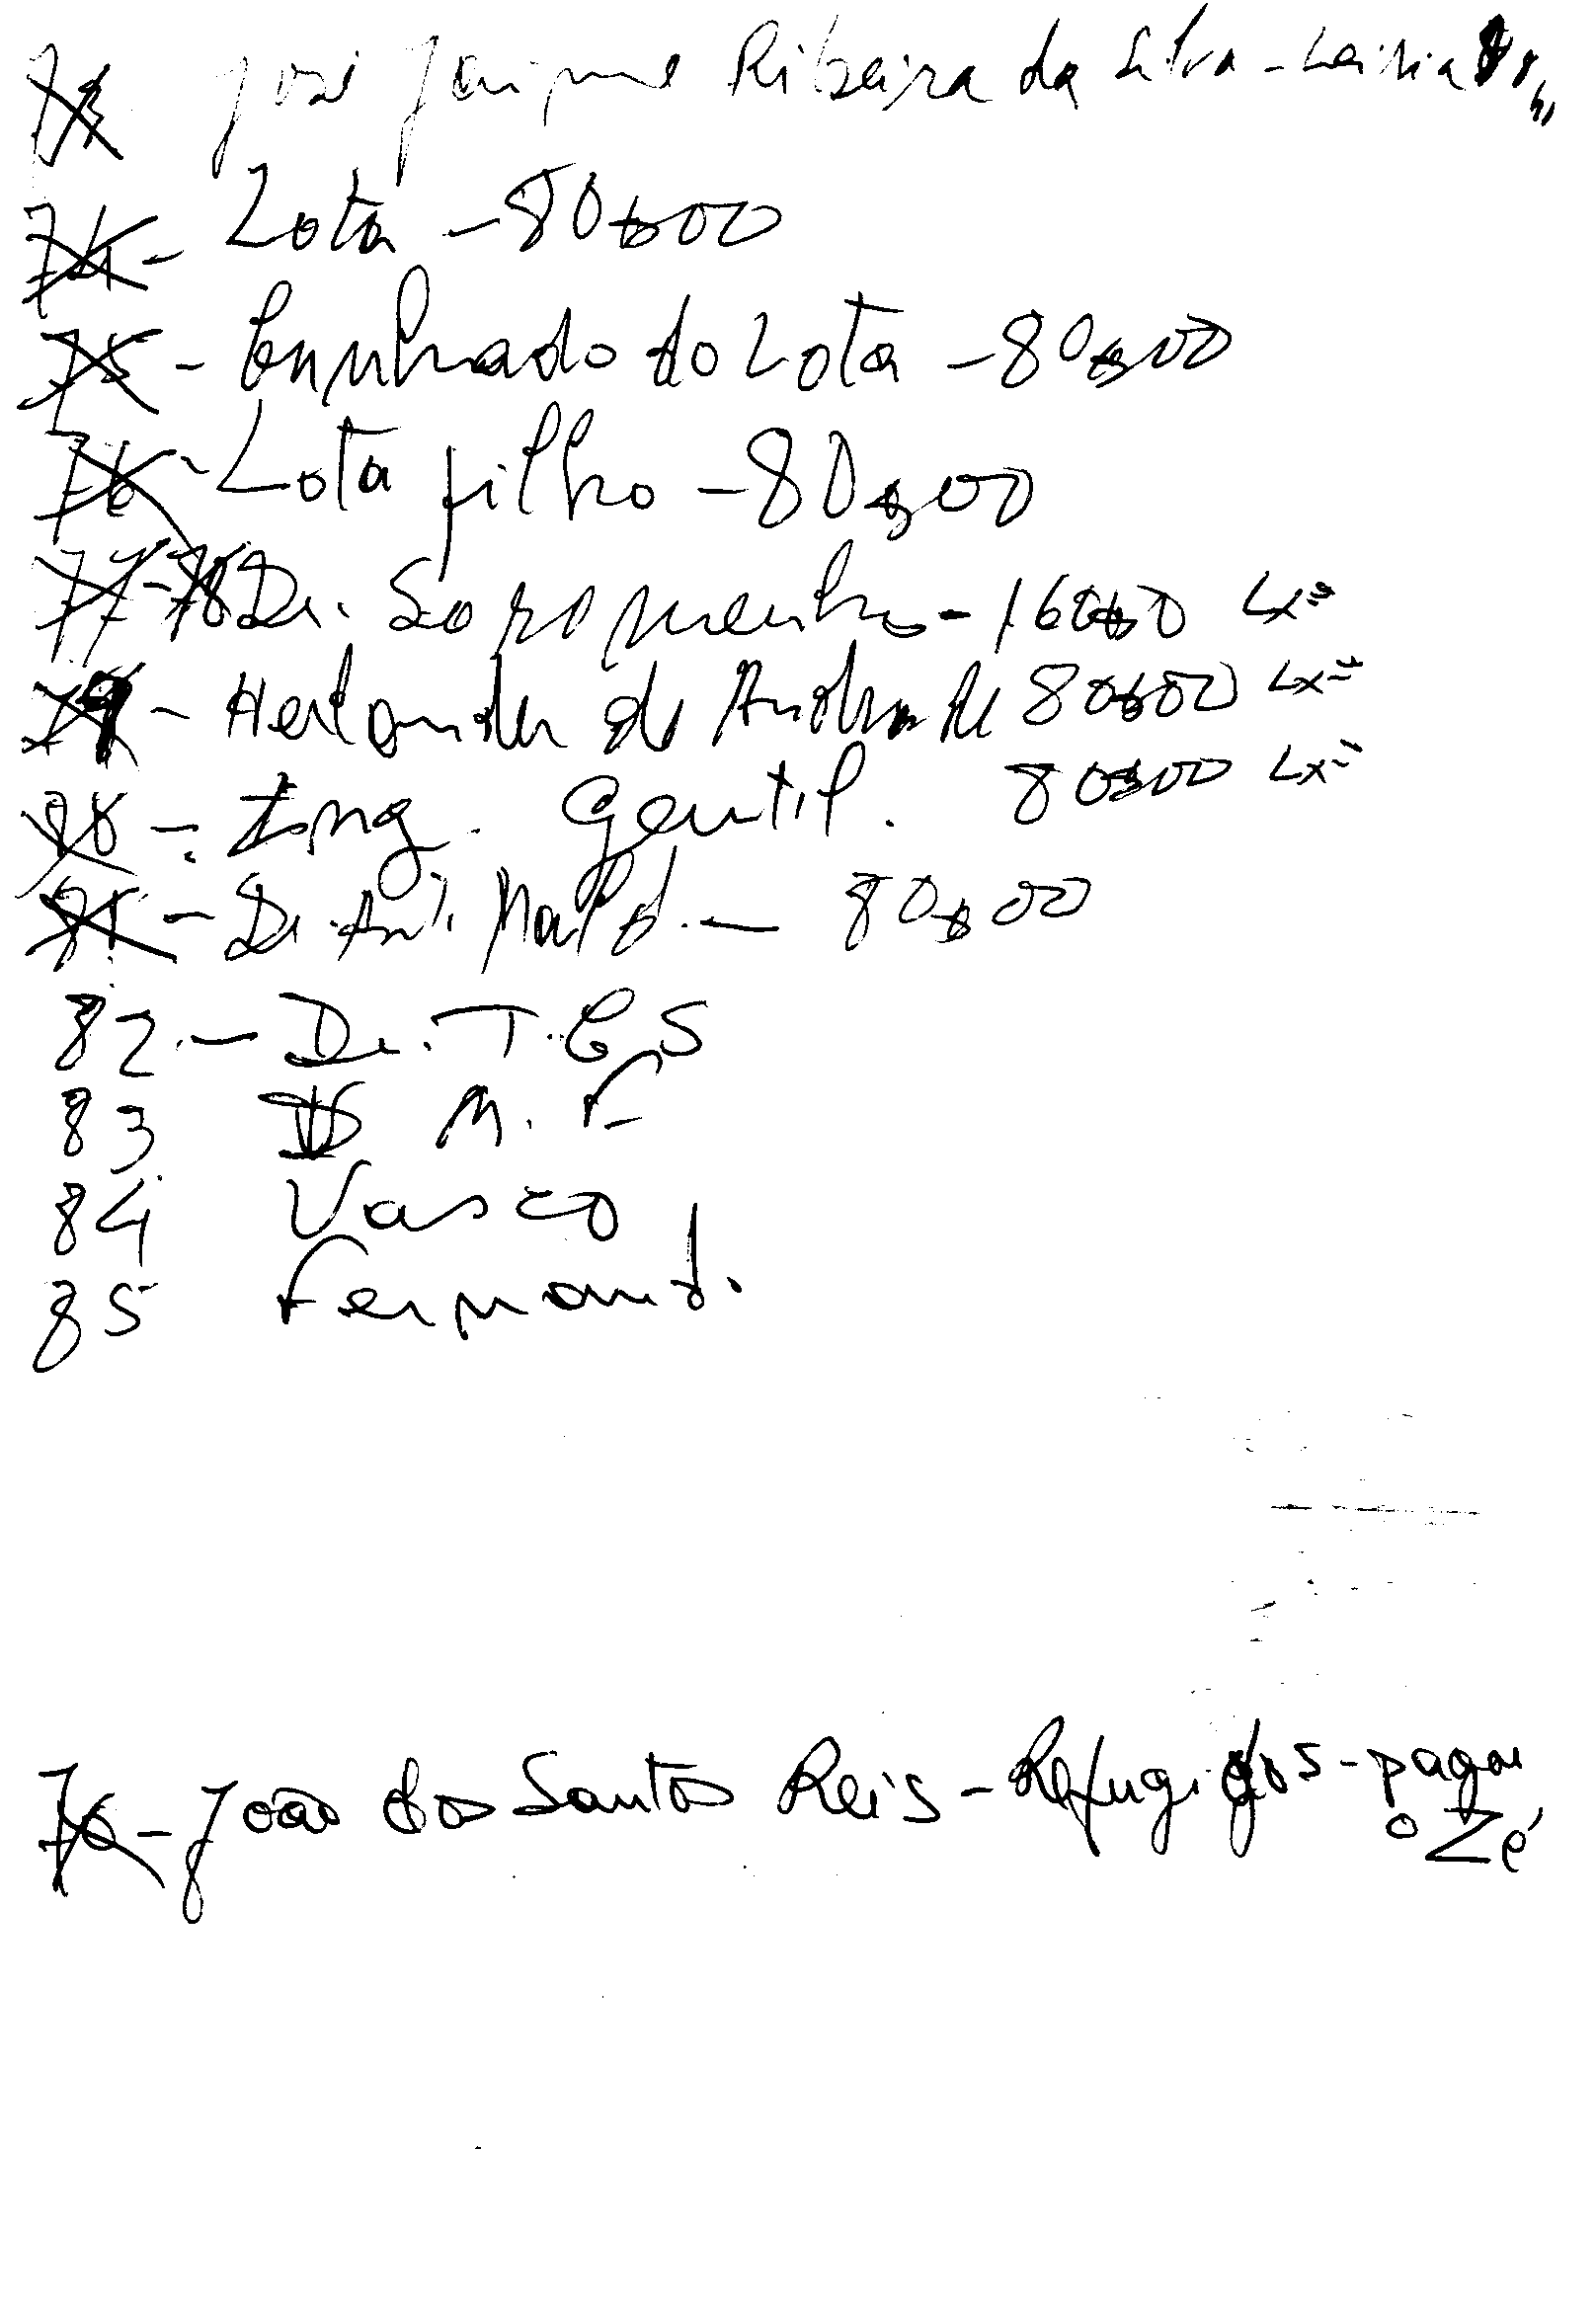 73 José Jaime Ribeira da Silva - Leiria
74 - Lota - 80$00
75 - Cunhado do Lota - 80$00
76 - Lota filho - 80$00
77-78 Dr. Soromenho - 160$0 Lxª
79 - Herlander de Andrade 80$00 Lxª
80 - Eng. Gentil. 80$00 Lxª
81 - Dr. Antº. - 80$00
82 - Dr. T. C. S
83 M. F
84 Vasco
85 Fernand.
76 - João dos Santos Reis - Refugidos - pagou
o Zé